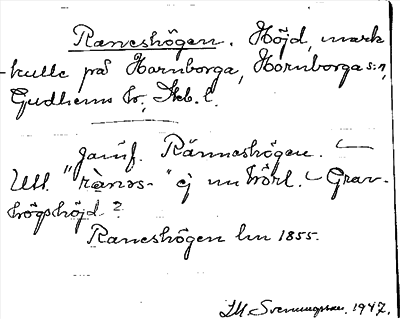 Raneshögen. Höjd, mark
kulle på Hornborga, Hornborga s:n,
Gudhems hr, Skb. l.
Jämf. Ränneshögen.
Utt. "rànəs-" ej
Grav-
högshöjd?
Raneshögen Lm 1855.
1947.